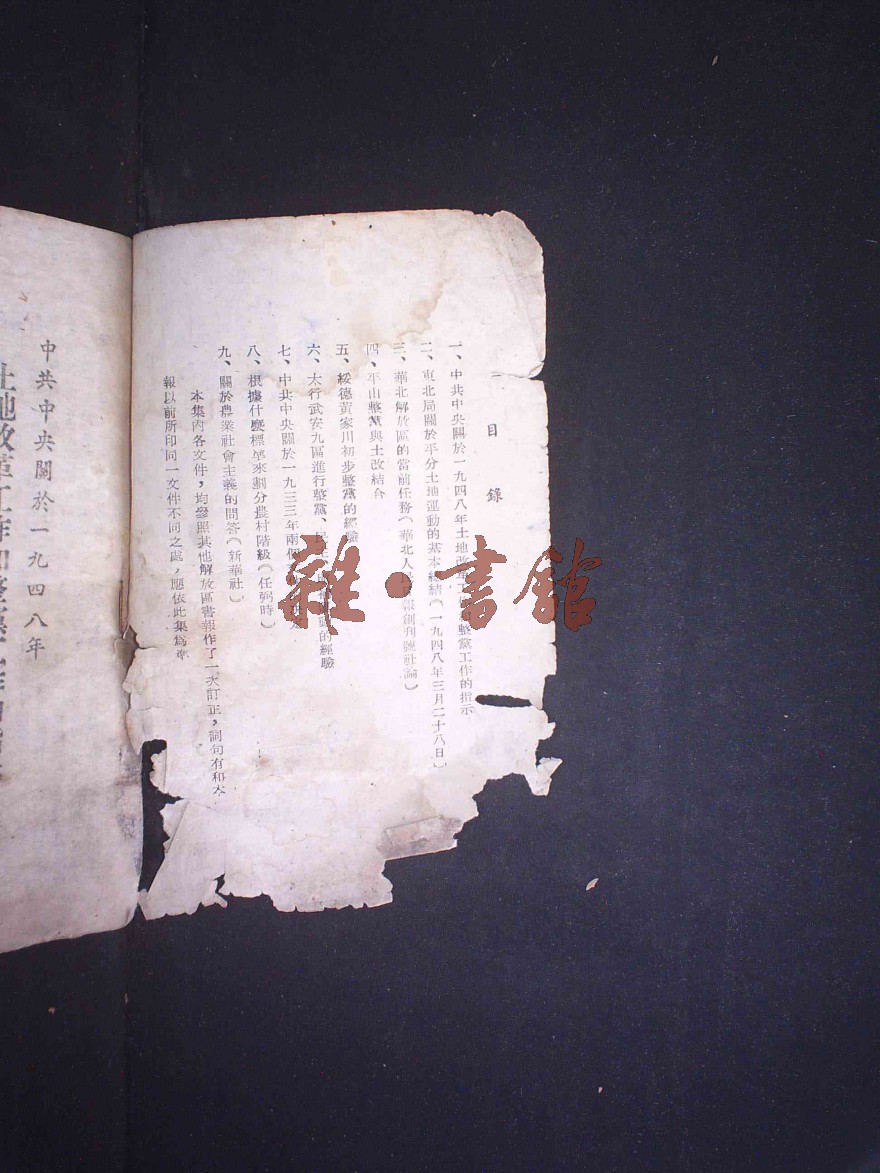 目錄
一、中共中央關於一九四八年土地改革工 整黨工作的指示
二、東北局關於平分土地運動的基本總結(一九四八年三月二十八日)
三、華北解放區的當前任務(華北人 報創刊號社論)
四、平山整黨與土改結合
五、綏德黃家川初步整黨的經驗
六、太行武安九區進行整黨、民 的經驗
七、中共中央關於一九三三年兩個
八、根據什麼標準來劃分農村階級(任弼時)
九、關於農業社會主義的問答(新華社)
本集內各文件,均參照其他解放區書報作了一次訂正,詞句有和本
報以前所印同一文件不同之處,應依此集爲準
中共中央關於一九四八年
土地改革工作和整黨工作
雜·書館